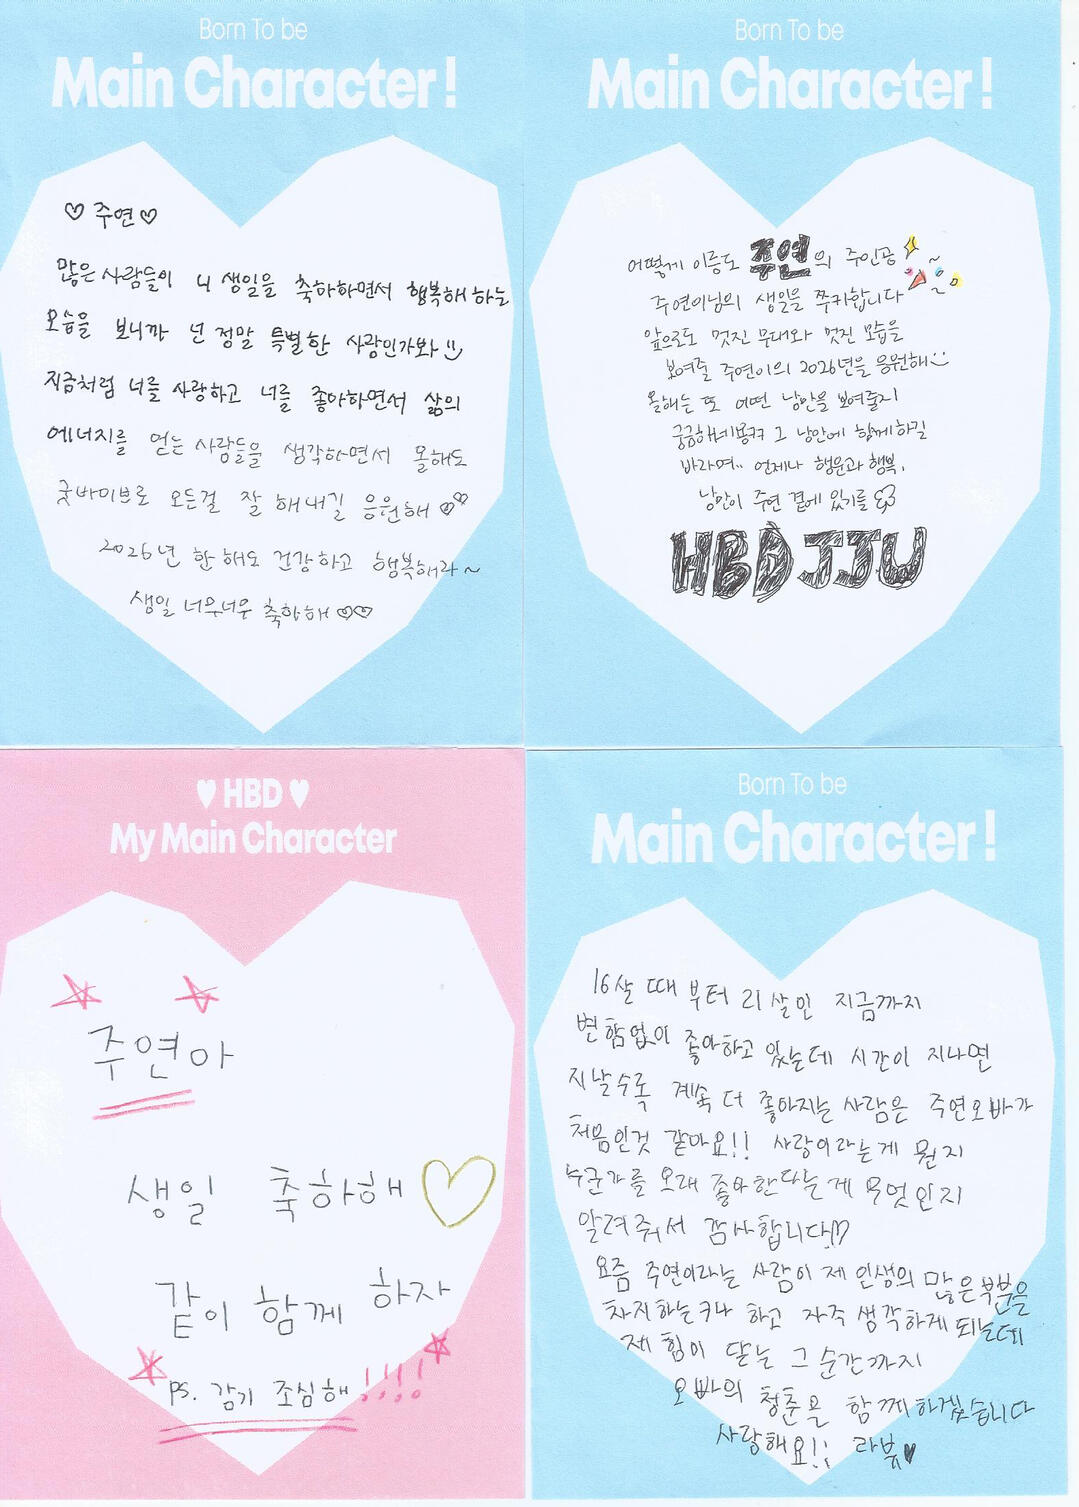 Born To be
Main Character!
♡ 주연 ♡
많은 사람들이 니 생일을 축하하면서 행복해 하는
모습을 보니까 넌 정말 특별한 사람인가봐
지금처럼 너를 사랑하고 너를 좋아하면서 삶의
에너지를 얻는 사람들을 생각하면서 올해도
굿바이브로 모든걸 잘 해내길 응원해 ♡♡
2026년 한 해도 건강하고 행복해라~
생일 너무너무 축하해 ♡♡
Born To be
Main Character!
어떻게 이름도 주연의 주인공~
주연이님의 생일을 쭈카합니다
앞으로도 멋진 무대와 멋진 모습을
보여줄 주연이의 2026년을 응원해
올해는 또 어떤 낭만을 보여줄지
궁금해 그 낭만에 함께하길
바라며.. 언제나 행운과 행복,
낭만이 주연 곁에 있기를
HBD JJU
♥ HBD ♥
My Main Character
주연아
생일 축하해 ♡
같이 함께 하자
ps. 감기 조심해!!!!
Born To be
Main Character!
16살 때 부터 21살인 지금까지
변함없이 좋아하고 있는데 시간이 지나면
지날수록 계속 더 좋아지는 사람은 주연오빠가
처음인것 같아요!! 사랑이라는게 뭔지
누군가를 오래 좋아한다는게 무엇인지
알려줘서 감사합니다!♡
요즘 주연이라는 사람이 제 인생의 많은부분을
차지하는구나 하고 자주 생각하게 되는데
제 힘이 닫는 그 순간까지
오빠의 청춘을 함께하겠습니다
사랑해요!! 라뷰♥